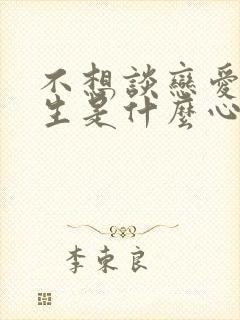 不想談戀愛
生是什麼心
李東良